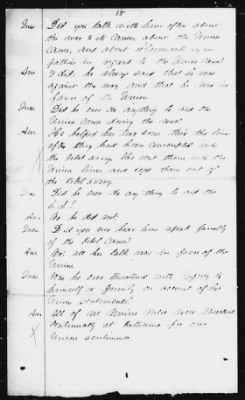 15
Ques Did you talk with him often about
the war & its causes about the Union
Cause, and about
in regard to the Union Cause
Ans I did. he always said that he was
against the war and that he was in
favor of the Union
Ques Did he ever do anything to aid the
Union Cause during the war?
Ans He helped his two sons this time
after they had been conscripted into
the rebel army. He sent them into the
Union lines and kept them out of
the rebel army
Ques Did he ever do any thing to aid the
C.S.?
Ans No he did not.
Ques Did you ever hear him speak favorably
of the rebel Cause?
Ans No: all his talk was in favor of the
Union
Ques Was he ever threatened with injury to
himself or family on account of his
Union sentiments?
Ans All of us Union men were threatened
continually at for our
Union sentiments